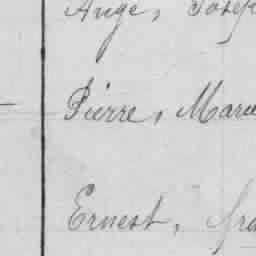 Ange, Joseph
Pierre, Marie
Ernest, Fra